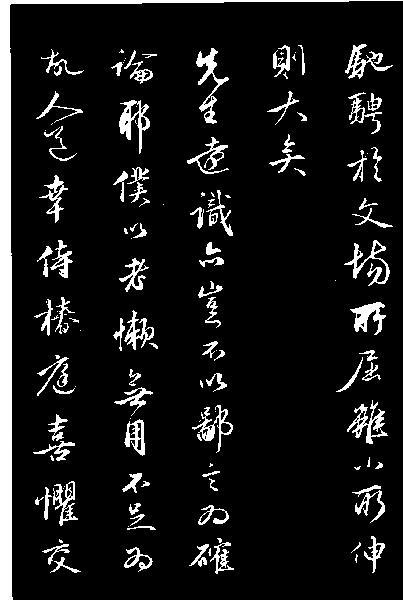 馳騁於文場所屈雖小所伸
則大矣
先生遠識亦豈不以鄙言為確
論耶僕以老懶無用不足為
故人道幸侍椿庭喜懼交